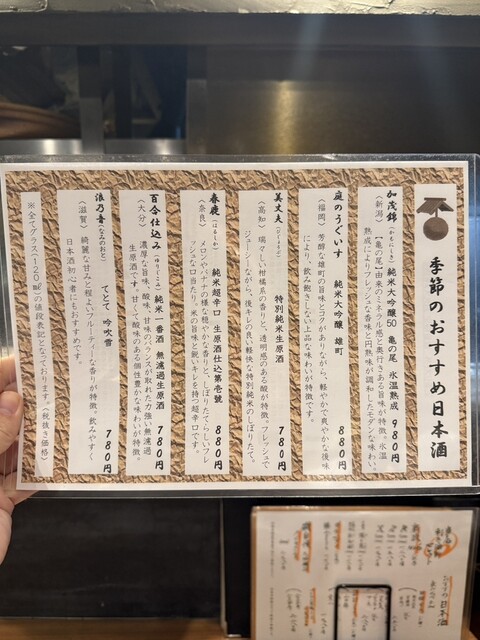 季節のおすすめ日本酒
加茂錦(かもにしき) 純米大吟醸50 亀の尾 氷温熟成 980円
(新潟) 【亀の尾】由来のミネラル感と奥行きある旨味が特徴。氷温
熟成によりフレッシュな香味と円熟味が調和したモダンな味わい。
庭のうぐいす 純米大吟醸 雄町 880円
(福岡) 芳醇な雄町の旨味とコクがありながら、軽やかで爽やかな後味
により、飲み飽きしない上品な味わいが特徴です。
美丈夫(びじょうふ) 特別純米生原酒 780円
(高知) 瑞々しい柑橘系の香りと、透明感のある酸が特徴。フレッシュで
ジューシーながら、後キレの良い軽快な特別純米のしぼりたて。
春鹿(はるしか) 純米超辛口 生原酒しぼりたて第壱號 880円
(奈良) メロンやバナナの様な穏やかな香りと、しぼりたてらしいフレ
ッシュな口当たり。米の旨味と鋭いキレを持つ超辛口です。
百合仕込み(ゆりじこみ) 純米 一番酒 無濾過生原酒 780円
(大分) 濃厚な旨味、酸味、甘味のバランスが取れた力強い無濾過
生原酒です。甘くて酸味のある個性豊かな味わいが特徴。
浪乃音(なみのおと) てとて 吟吹雪 780円
(滋賀) 綺麗な甘みと程よいフルーティーな香りが特徴。飲みやすく
日本酒初心者にもおすすめです。
※全てグラス(120㎖)の値段表記となっております。(税抜き価格)
日本酒